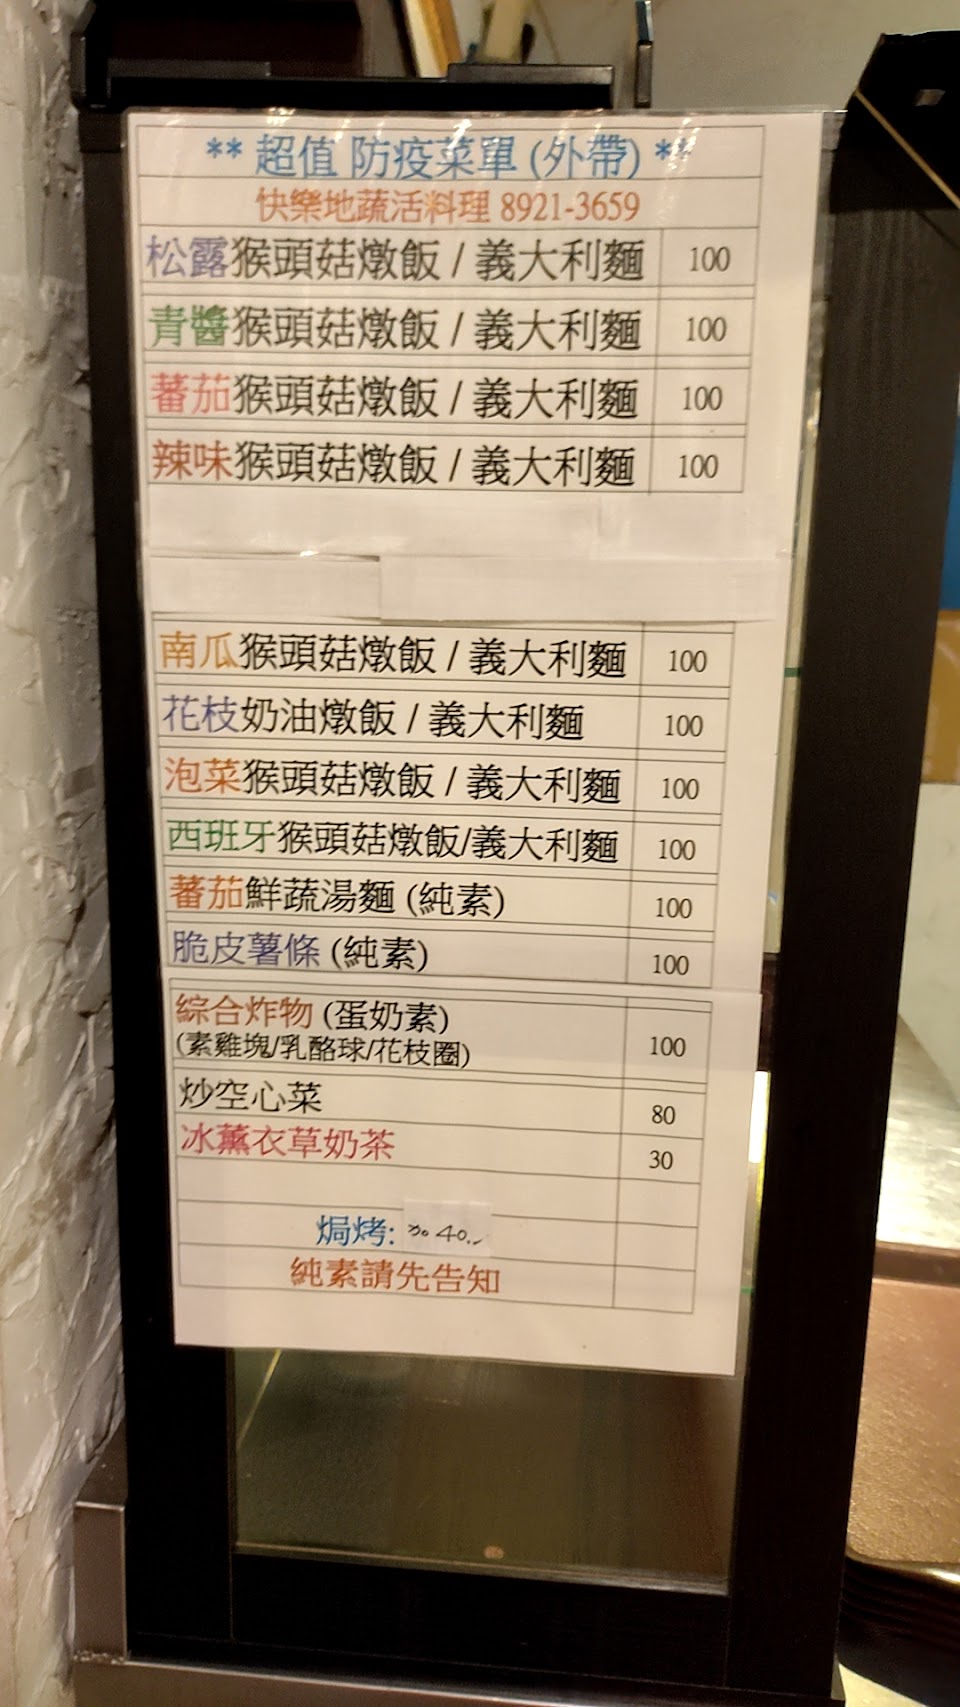 ** 超值 防疫菜單 (外帶) **
快樂地蔬活料理 8921-3659
松露猴頭菇燉飯 / 義大利麵 100
青醬猴頭菇燉飯 / 義大利麵 100
蕃茄猴頭菇燉飯 / 義大利麵 100
辣味猴頭菇燉飯 / 義大利麵 100
南瓜猴頭菇燉飯 / 義大利麵 100
花枝奶油燉飯 / 義大利麵 100
泡菜猴頭菇燉飯 / 義大利麵 100
西班牙猴頭菇燉飯/義大利麵 100
蕃茄鮮蔬湯麵 (純素) 100
脆皮薯條 (純素) 100
綜合炸物 (蛋奶素)
(素雞塊/乳酪球/花枝圈) 100
炒空心菜 80
冰薰衣草奶茶 30
焗烤: 加40.-
純素請先告知